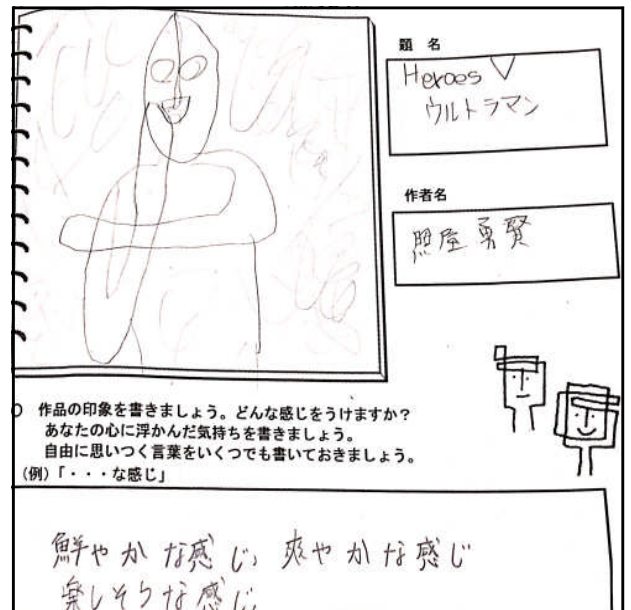 題 名
Heroes ♡
ウルトラマン
作者名
照屋勇賢
作品の印象を書きましょう。どんな感じをうけますか？
あなたの心に浮かんだ気持ちを書きましょう。
自由に思いつく言葉をいくつでも書いておきましょう。
(例)「・・・な感じ」
鮮やかな感じ、爽やかな感じ
楽しそうな感じ